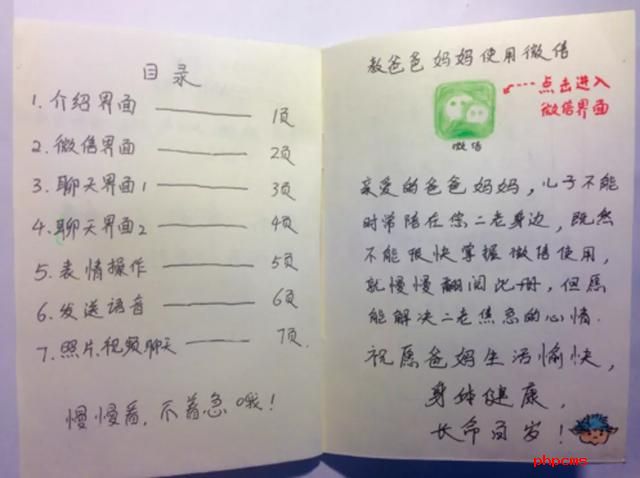 目录
1. 介绍界面 1页
2. 微信界面 2页
3. 聊天界面1 3页
4. 聊天界面2 4页
5. 表情操作 5页
6. 发送语音 6页
7. 照片.视频聊天 7页.
慢慢看,不着急哦!
教爸爸妈妈使用微信
点击进入
微信界面
微信
亲爱的爸爸妈妈,儿子不能
时常陪在您二老身边,既然
不能很快掌握微信使用,
就慢慢翻阅此册,但愿
能解决二老焦急的心情.
祝愿爸妈生活愉快,
身体健康,
长命百岁!
phpcms